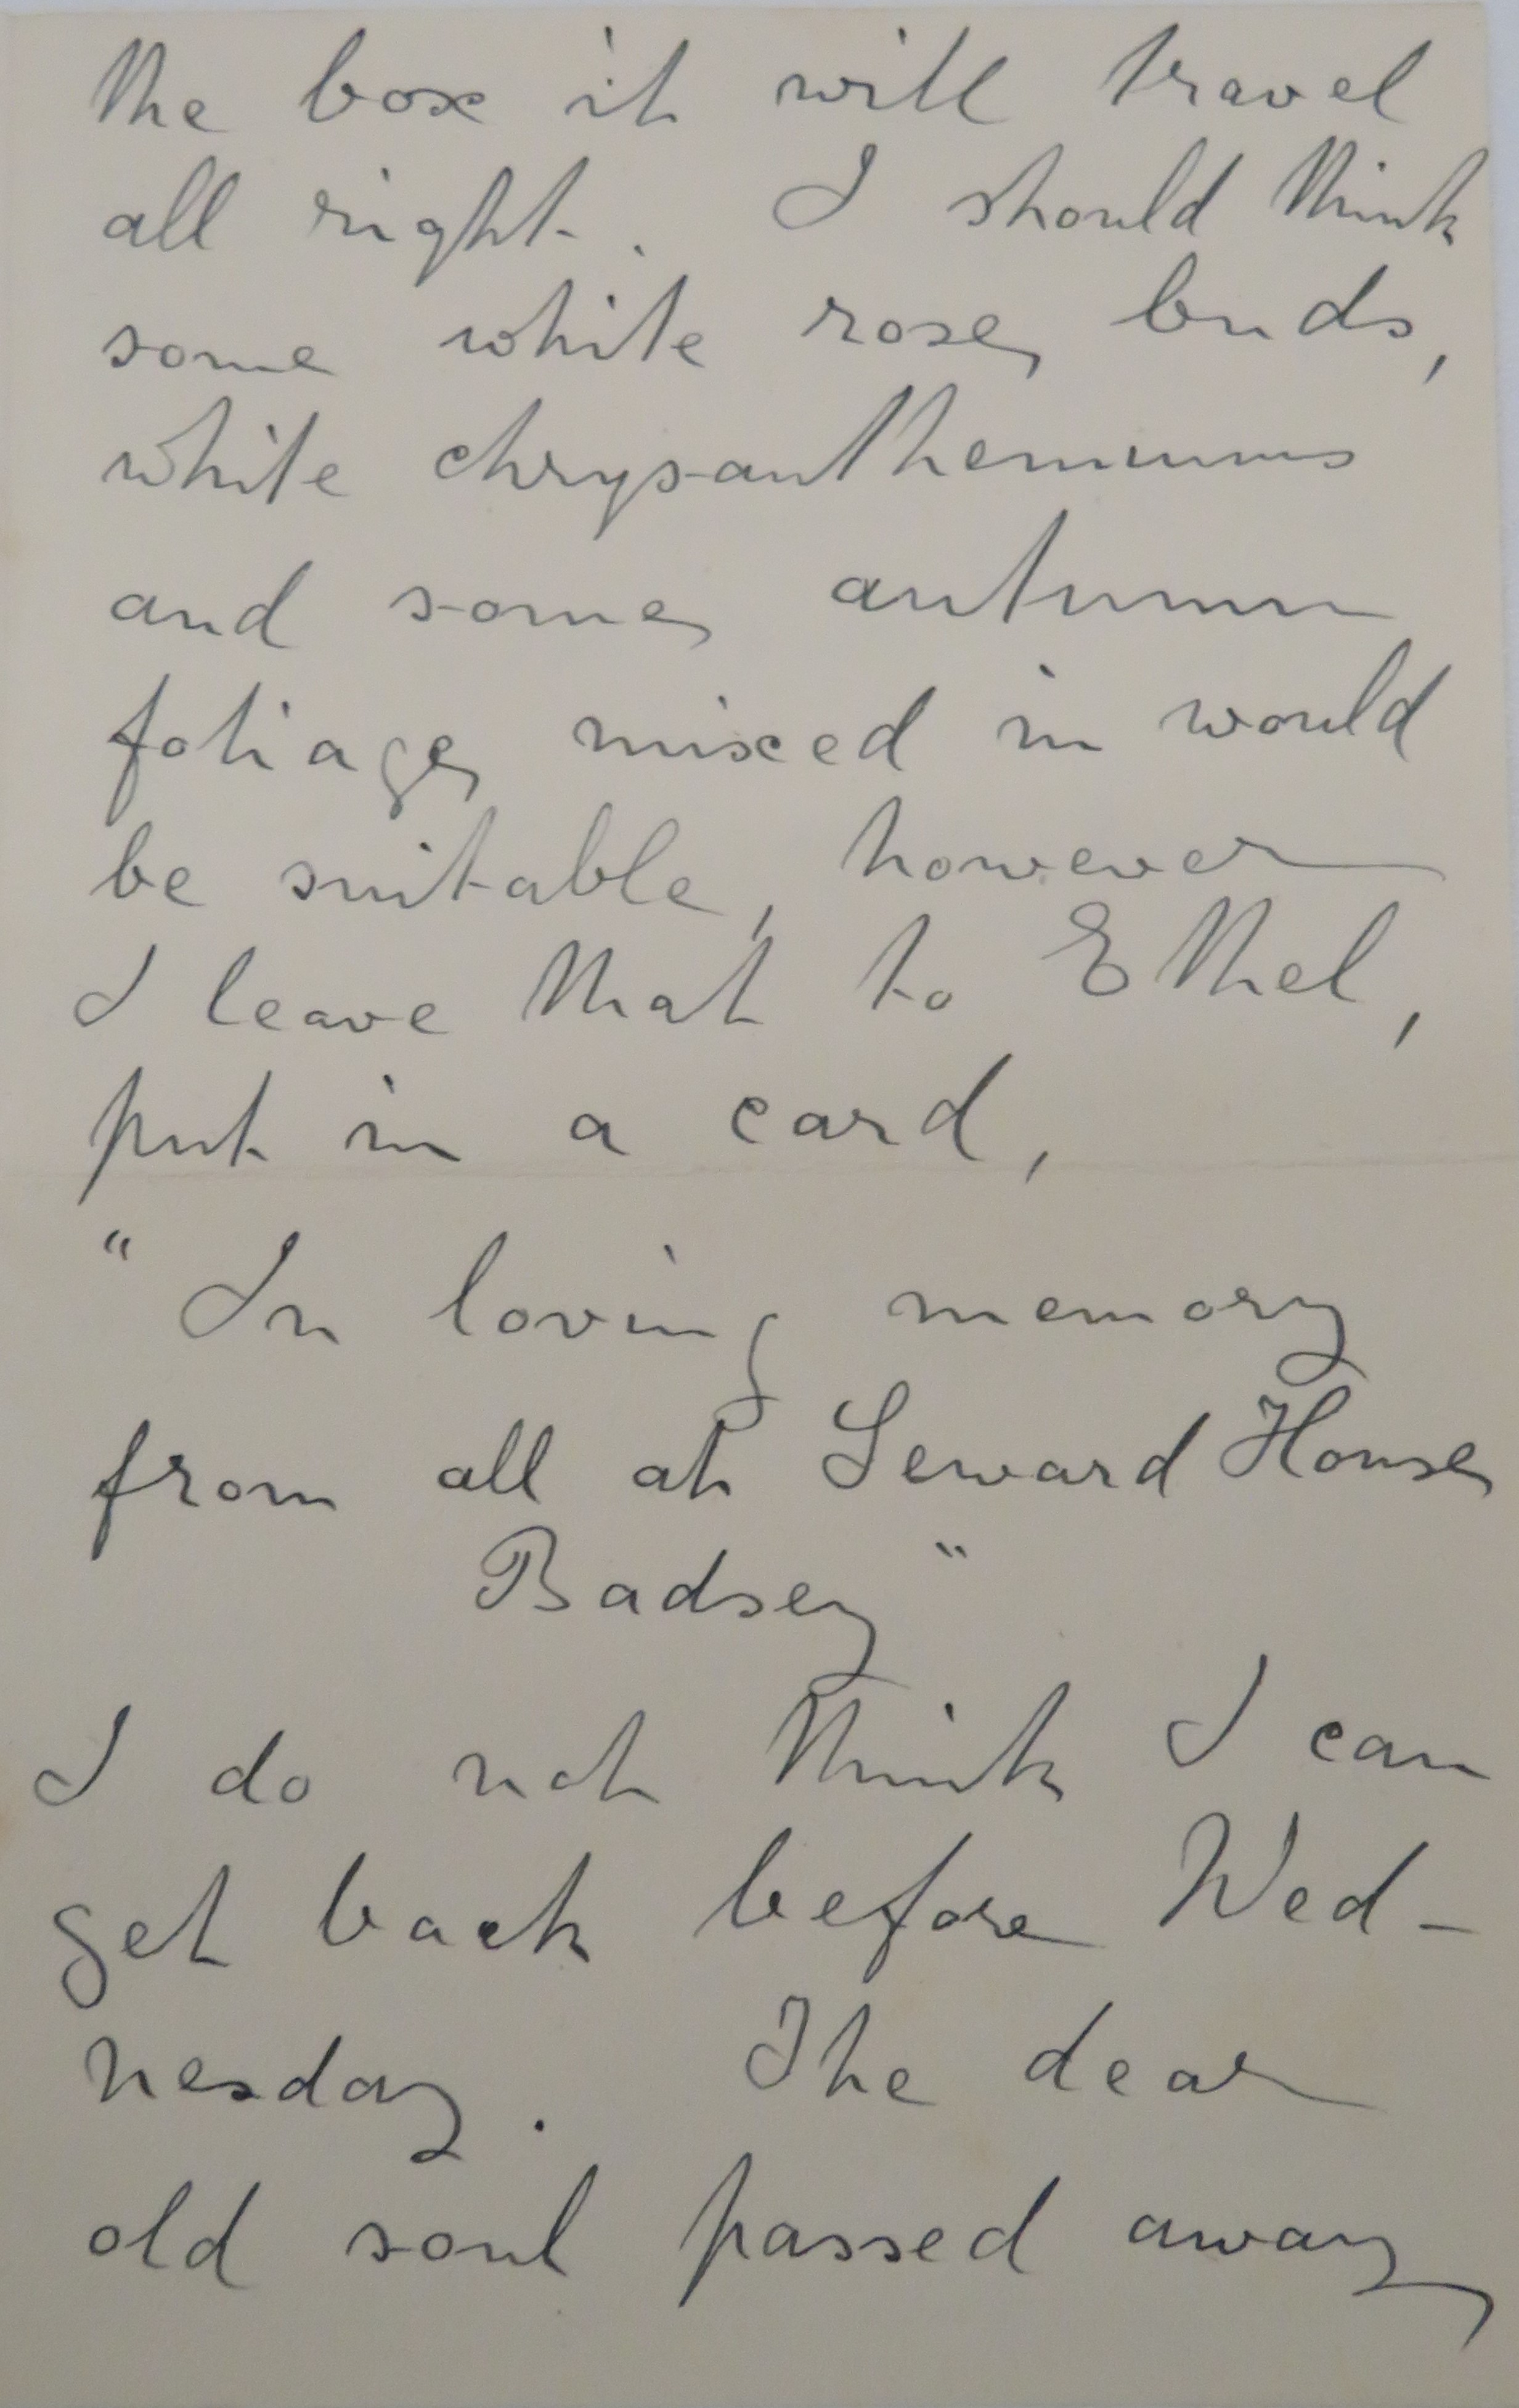 the box it will travel
all right. I should think
some white rose buds,
white chrysanthemums
and some autumn
foliage mixed in would
be suitable, however
I leave that to Ethel,
put in a card,
" In loving memory
from all at Seward House
Badsey "
I do not think I can
get back before Wed-
nesday. The dear
old soul passed away